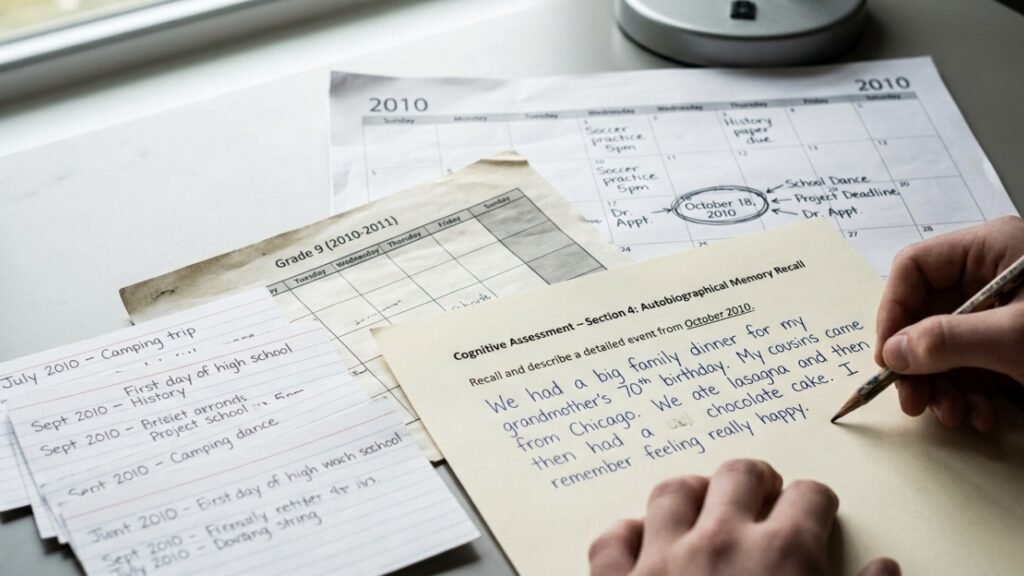 2010
2010
Sunday Monday Tuesday Wednesday Wednesday Thursday Friday Saturday
Soccer
practice
5pm
History
paper
due
Soccer
practice
5pm
Dr.
Appt.
October 18,
2010
School Dance
Project Deadline
Dr. Appt.
5
10
11
12
17
20
24
25
26
27
28
Grade 9 (2010-2011)
Tuesday Wednesday Thursday Friday Sunday
Cognitive Assessment – Section 4: Autobiographical Memory Recall
Recall and describe a detailed event from October 2010.
We had a big family dinner for my
grandmother's 70th birthday. My cousins came
from Chicago. We ate lasagna and then
then had a chocolate cake. I
remember feeling really happy.
July 2010 – Camping trip
First day of high school
Sept 2010 – History
Sept 2010 –
Project school
2010 – Camping dance
2010 – First day of high school
Sept 2010 –
July 2010 – string